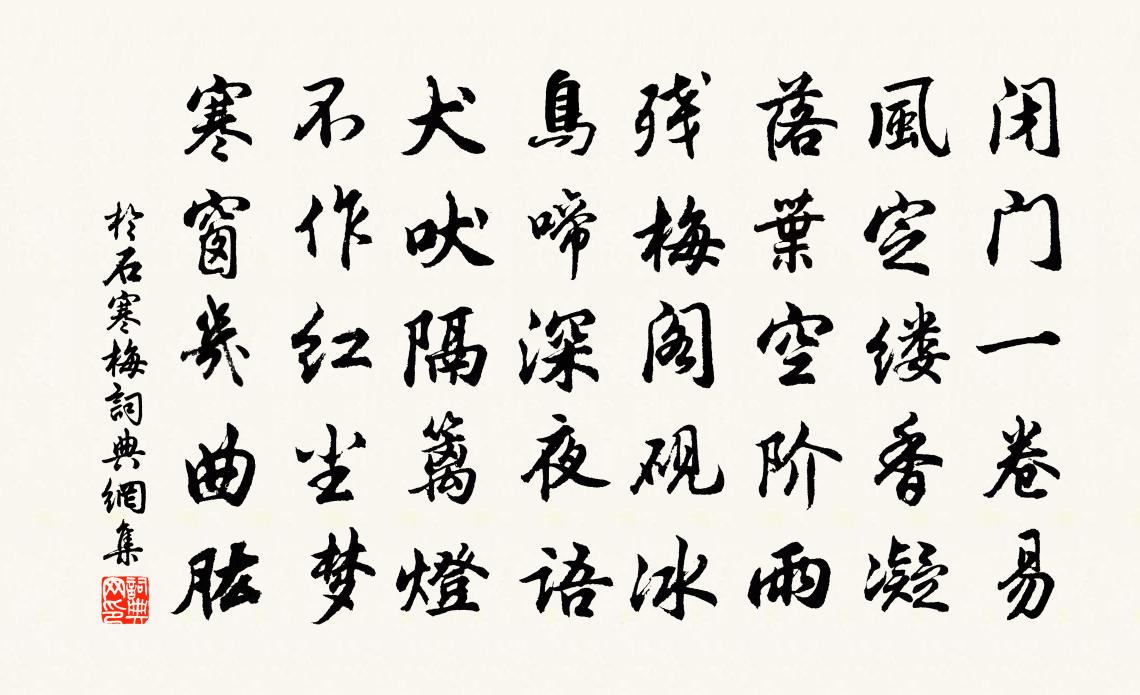 闭门一卷易
風定缕香凝
落葉空阶雨
残梅阁砚冰
鳥啼深夜语
犬吠隔篱燈
不作红尘梦
寒窗幾曲肱
於石寒梅詞典網集
詞典网印